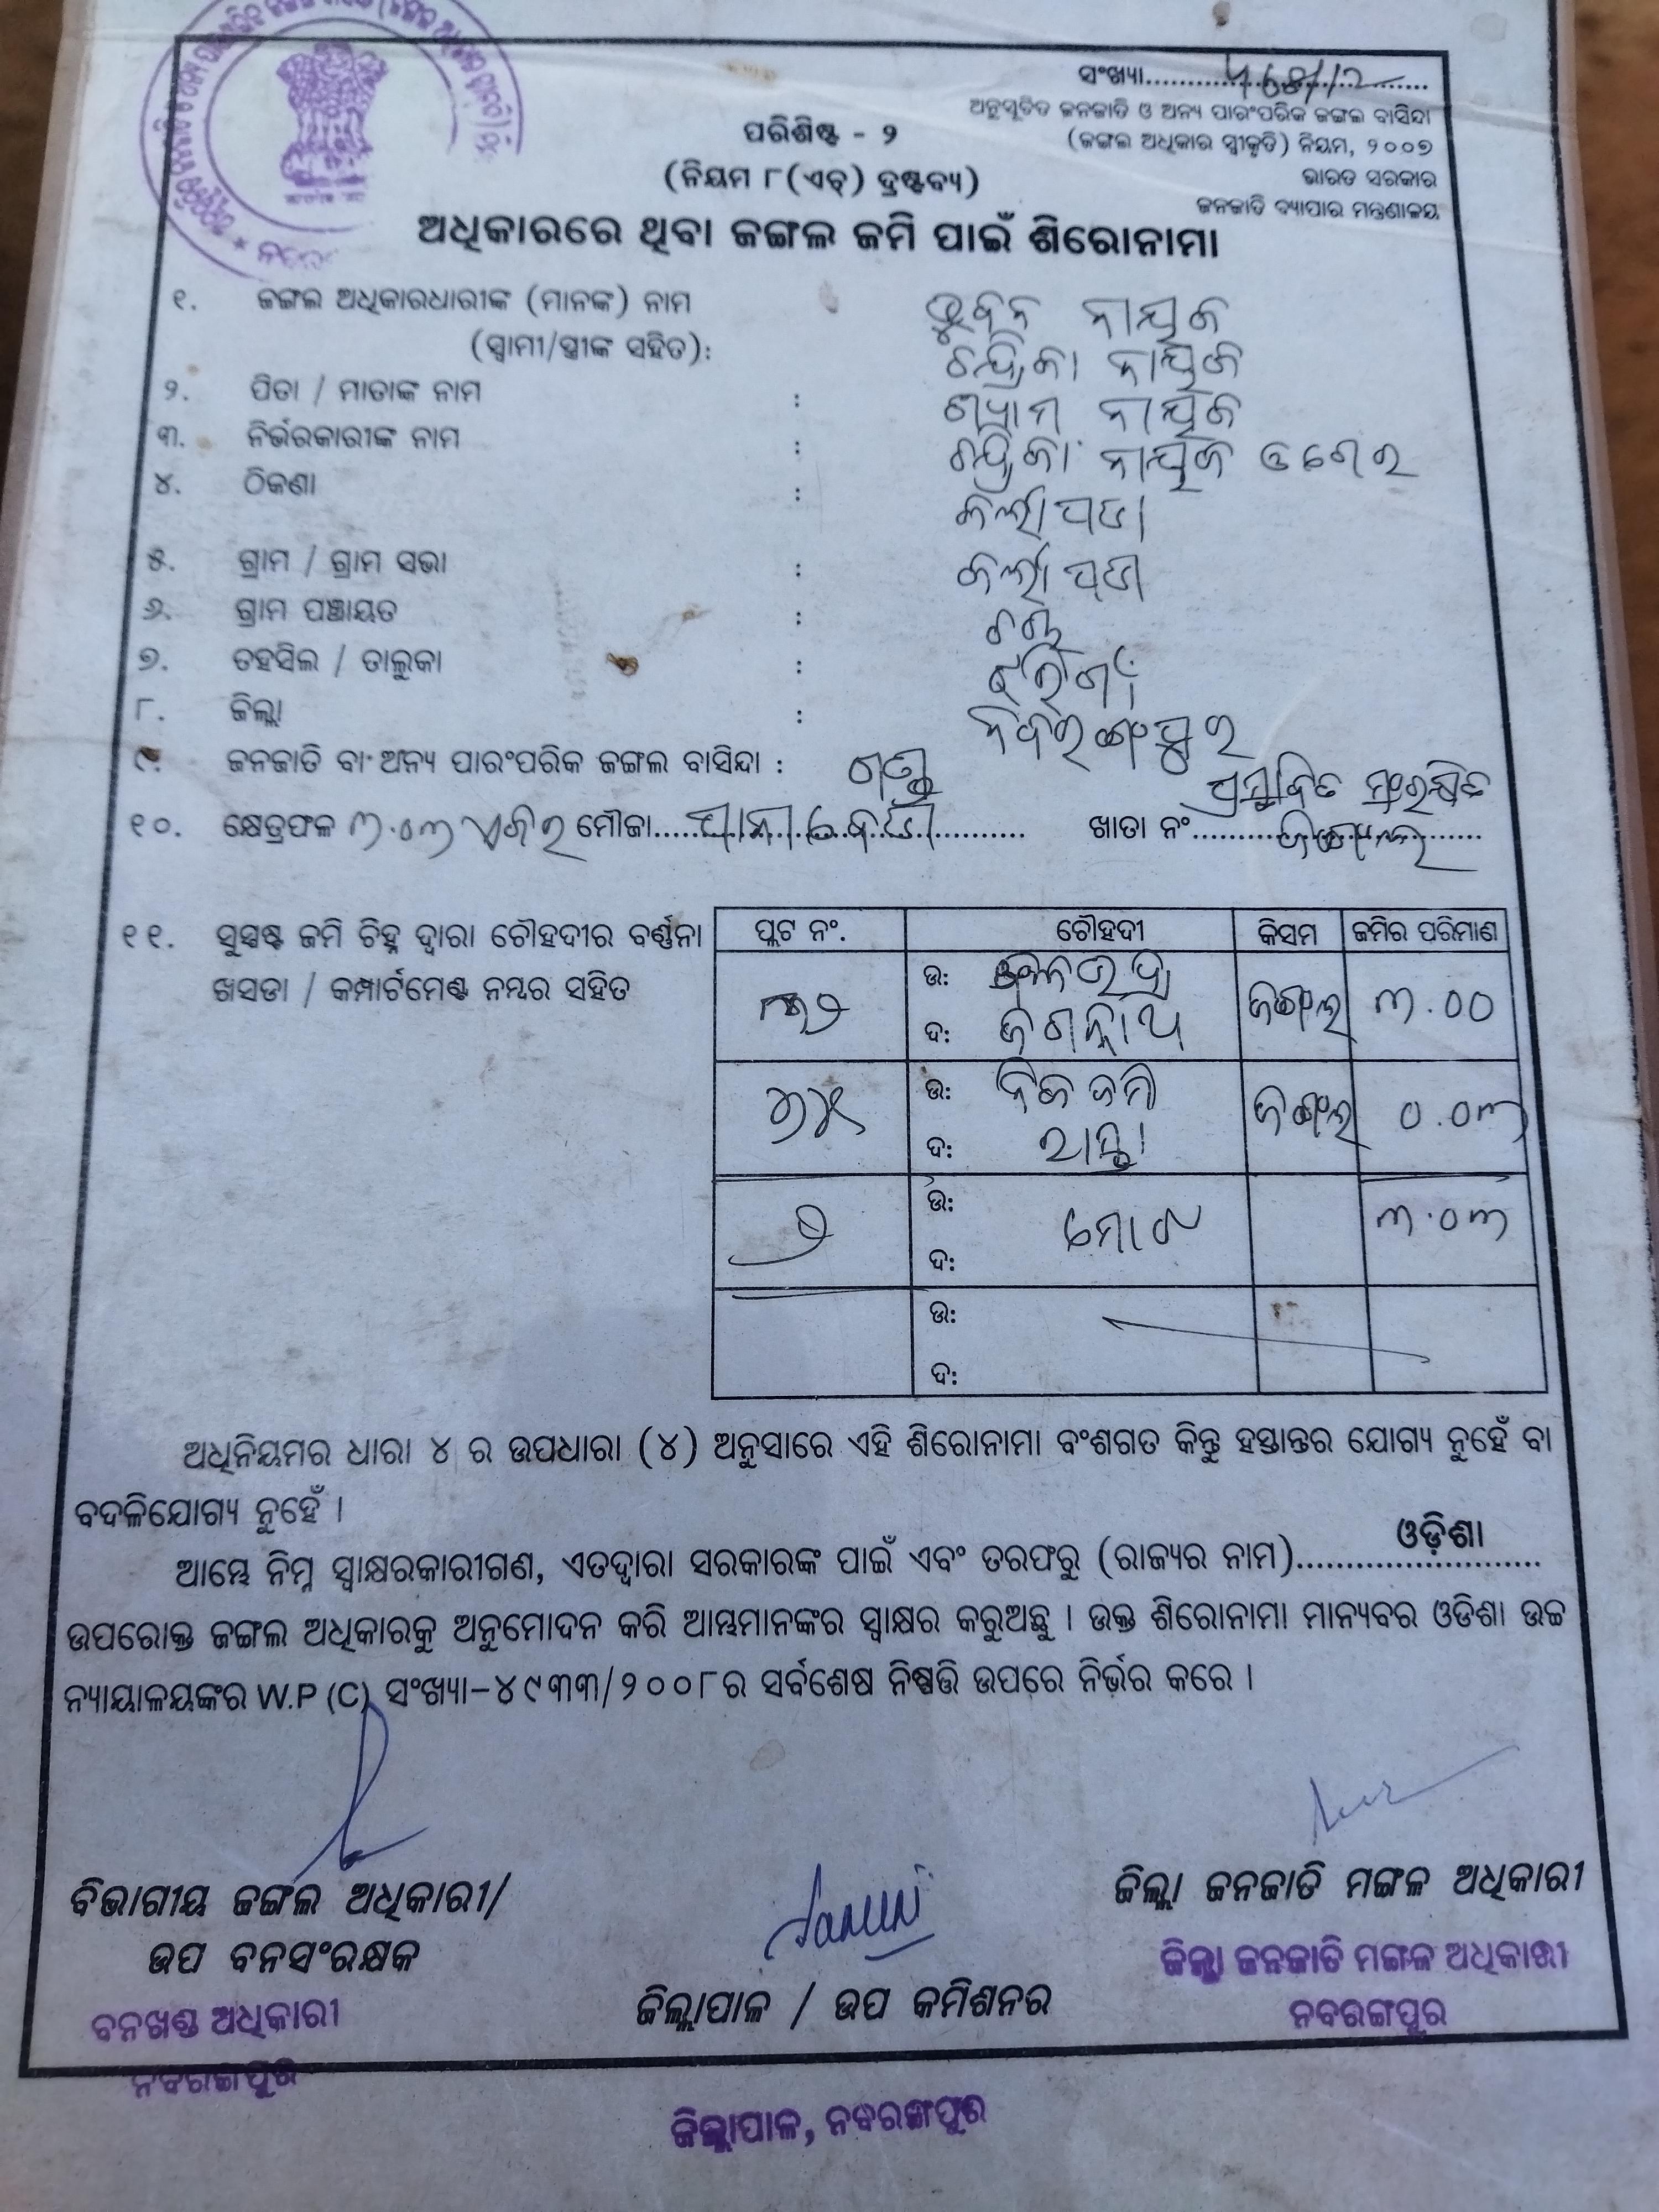 ସଂଖ୍ୟା
ଅନୁସୂଚିତ ଜନଜାତି ଓ ଅନ୍ୟ ପାରଂପରିକ ଜଙ୍ଗଲ ବାସିନ୍ଦା
ପରିଶିଷ୍ଟ - ୨
(ଜଙ୍ଗଲ ଅଧିକାର ସ୍ୱୀକୃତି) ନିୟମ, ୨୦୦୭
(ନିୟମ ୮(ଏଚ୍) ଦ୍ରଷ୍ଟବ୍ୟ)
ଭାରତ ସରକାର
ଜନଜାତି ବ୍ୟାପାର ମନ୍ତ୍ରଣାଳୟ
ଅଧିକାରରେ ଥିବା ଜଙ୍ଗଲ ଜମି ପାଇଁ ଶିରୋନାମା
୧. ଜଙ୍ଗଲ ଅଧିକାରଧାରୀଙ୍କ (ମାନଙ୍କ) ନାମ ନାୟକ
(ସ୍ୱାମୀ/ସ୍ତ୍ରୀଙ୍କ ସହିତ): ଚନ୍ଦ୍ରିକା ନାୟକ
୨. ପିତା / ମାତାଙ୍କ ନାମ : ଶ୍ୟାମ ନାୟକ
୩. ନିର୍ଭରକାରୀଙ୍କ ନାମ : ଚନ୍ଦ୍ରିକା ନାୟକ
୪. ଠିକଣା :
୫. ଗ୍ରାମ / ଗ୍ରାମ ସଭା :
୬. ଗ୍ରାମ ପଞ୍ଚାୟତ :
୭. ତହସିଲ / ତାଲୁକା : ଝରିଗାଁ
୮. ଜିଲ୍ଲା : ନବରଙ୍ଗପୁର
୯. ଜନଜାତି ବା ଅନ୍ୟ ପାରଂପରିକ ଜଙ୍ଗଲ ବାସିନ୍ଦା : ଗଣ୍ଡ
ପ୍ରସ୍ତାବିତ ସଂରକ୍ଷିତ
୧୦. କ୍ଷେତ୍ରଫଳ ୩.୦୩ ଏକର ମୌଜା ଖାତା ନଂ ଜଙ୍ଗଲ
୧୧. ସୁସ୍ପଷ୍ଟ ଜମି ଚିହ୍ନ ଦ୍ୱାରା ଚୌହଦୀର ବର୍ଣ୍ଣନା
ଖସଡା / କମ୍ପାର୍ଟମେଣ୍ଟ ନମ୍ବର ସହିତ
ପ୍ଲଟ ନଂ. ଚୌହଦୀ କିସମ ଜମିର ପରିମାଣ
ଉ: ଜଙ୍ଗଲ ୩.୦୦
ଦ: ଜଗନ୍ନାଥ
ଉ: ନିଜ ଜମି ଜଙ୍ଗଲ ୦.୦୩
ଦ: ରାସ୍ତା
୨ ଉ: ମୋଟ ୩.୦୩
ଦ:
ଉ:
ଦ:
ଅଧିନିୟମର ଧାରା ୪ ର ଉପଧାରା (୪) ଅନୁସାରେ ଏହି ଶିରୋନାମା ବଂଶଗତ କିନ୍ତୁ ହସ୍ତାନ୍ତର ଯୋଗ୍ୟ ନୁହେଁ ବା
ବଦଳିଯୋଗ୍ୟ ନୁହେଁ ।
ଆମ୍ଭେ ନିମ୍ନ ସ୍ୱାକ୍ଷରକାରୀଗଣ, ଏତଦ୍ୱାରା ସରକାରଙ୍କ ପାଇଁ ଏବଂ ତରଫରୁ (ରାଜ୍ୟର ନାମ) ଓଡ଼ିଶା
ଉପରୋକ୍ତ ଜଙ୍ଗଲ ଅଧିକାରକୁ ଅନୁମୋଦନ କରି ଆମ୍ଭମାନଙ୍କର ସ୍ୱାକ୍ଷର କରୁଅଛୁ । ଉକ୍ତ ଶିରୋନାମା ମାନ୍ୟବର ଓଡିଶା ଉଚ୍ଚ
ନ୍ୟାୟାଳୟଙ୍କର W.P (C) ସଂଖ୍ୟା-୪୯୩୩/୨୦୦୮ର ସର୍ବଶେଷ ନିଷ୍ପତ୍ତି ଉପରେ ନିର୍ଭର କରେ ।
ବିଭାଗୀୟ ଜଙ୍ଗଲ ଅଧିକାରୀ/
ଉପ ବନସଂରକ୍ଷକ
ବନଖଣ୍ଡ ଅଧିକାରୀ
ନବରଙ୍ଗପୁର
ଜିଲ୍ଲାପାଳ / ଉପ କମିଶନର
ଜିଲ୍ଲାପାଳ, ନବରଙ୍ଗପୁର
ଜିଲ୍ଲା ଜନଜାତି ମଙ୍ଗଳ ଅଧିକାରୀ
ଜିଲ୍ଲା ଜନଜାତି ମଙ୍ଗଳ ଅଧିକାରୀ
ନବରଙ୍ଗପୁର